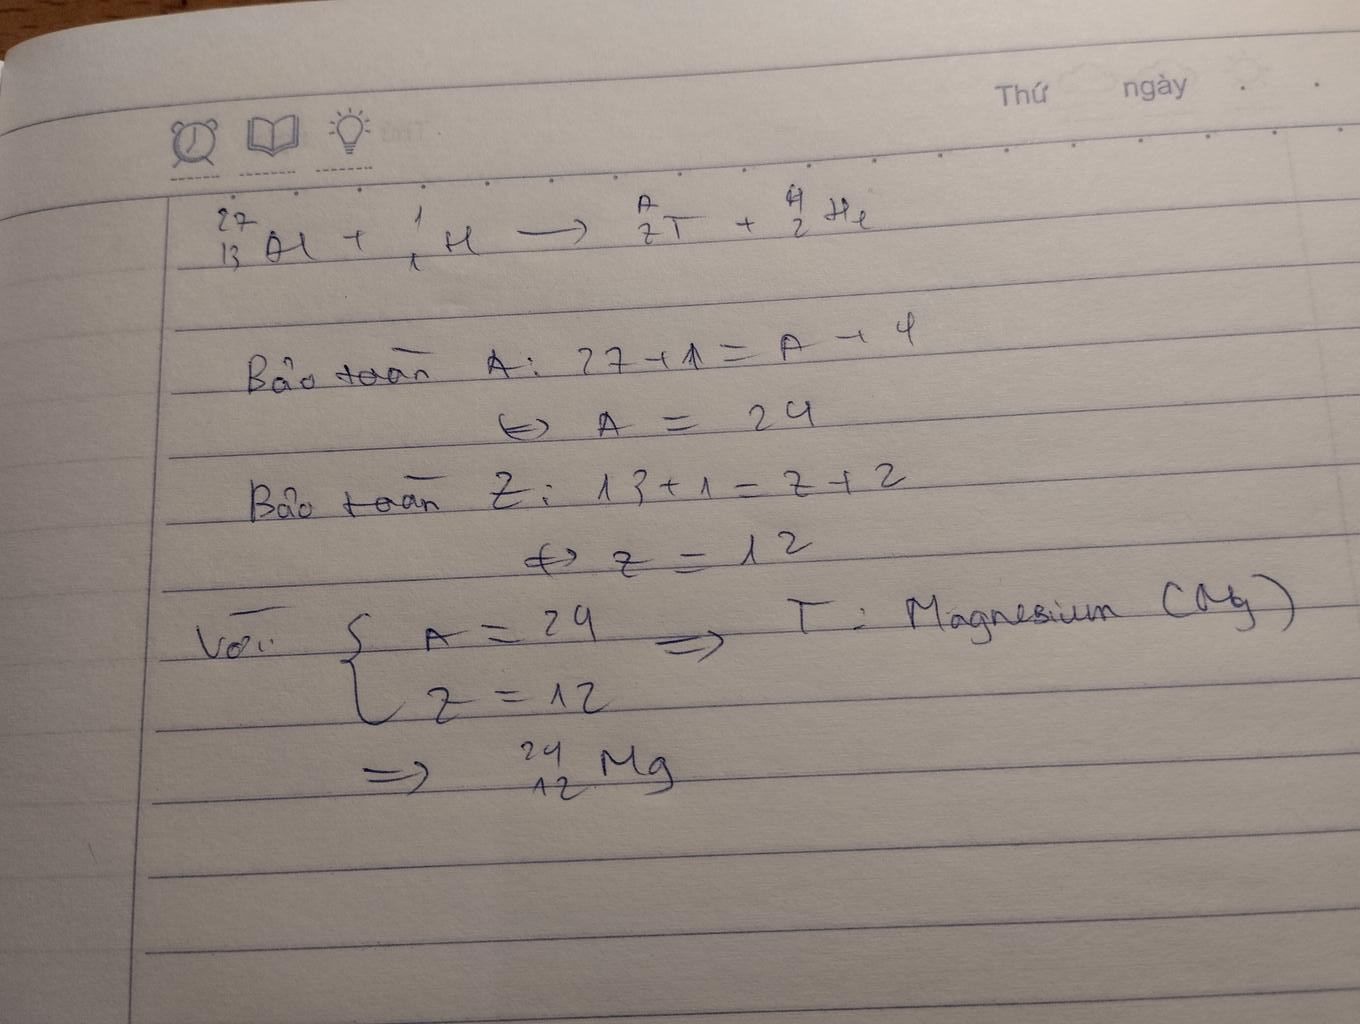 Thứ ngày . .
²⁷₁₃Al + ¹₁H → ᴬ_Z T + ⁴₂He
Bảo toàn A: 27 + 1 = A + 4
⇔ A = 24
Bảo toàn Z: 13 + 1 = Z + 2
⇔ Z = 12
Với: { A = 24 ⇒ T: Magnesium (Mg)
Z = 12
⇒ ²⁴₁₂Mg